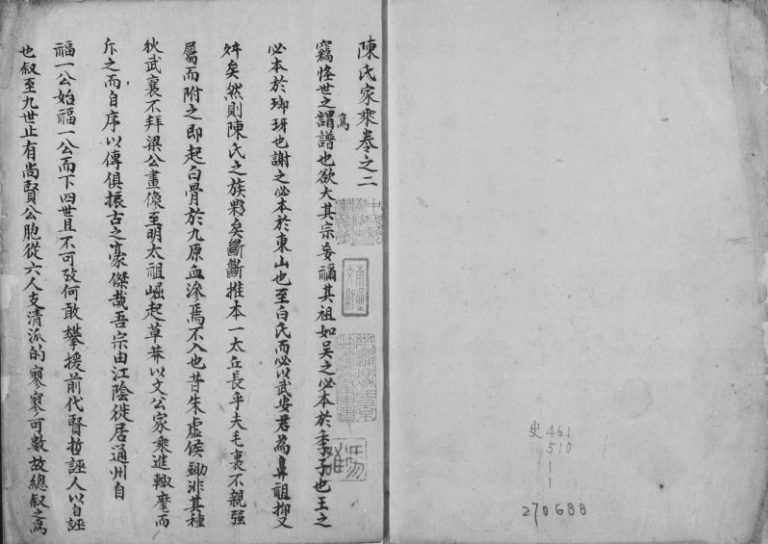 陳氏家乘卷之二
竊怪世之為譜也欲大其宗妄禰其祖如吴之必本於季子也王之
必本於瑯玡也謝之必本於東山也至白氏而必以武安君為鼻祖抑又
舛矣然則陳氏之族夥矣斷斷推本一太丘長乎夫毛裏不親强
屬而附之即起白骨於九原血滲焉不入也昔朱虛侯鋤非其種
狄武襄不拜梁公畫像至明太祖崛起草莽以文公家乘進輙麾而
斥之而自序以傳俱振古之豪傑哉吾宗由江陰徙居通州自
福一公始福一公而下四世且不可攷何敢攀援前代賢哲誣人以自誣
也叙至九世止有尚賢公胞從六人支清派的寥寥可數故總叙之為
史 461
510
1
1
270688